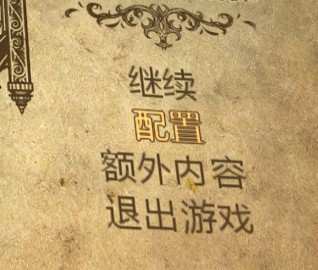 继续
配置
额外内容
退出游戏